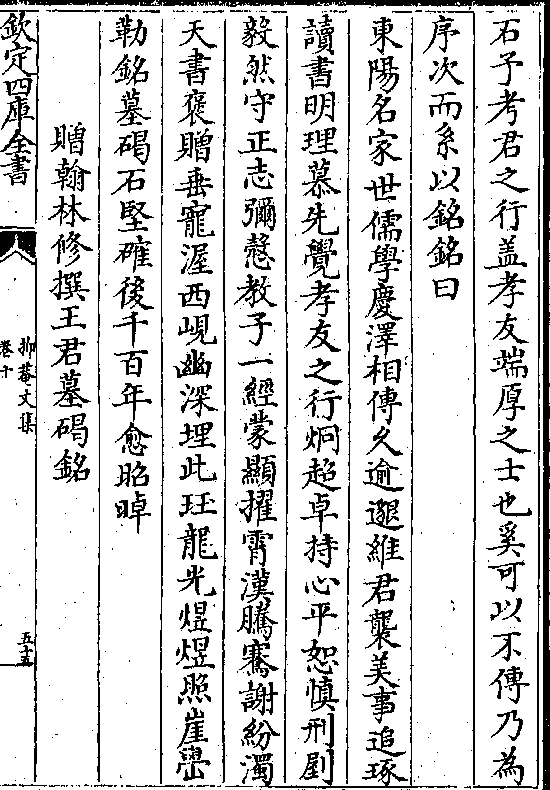 石予考君之行盖孝友端厚之士也奚可以不傳乃為
序次而系以銘銘曰
東陽名家世儒學慶澤相傳久逾邈維君襲美事追琢
讀書明理慕先覺孝友之行炯超卓持心平恕慎刑剭
毅然守正志彌慤教子一經蒙顯擢霄漢騰騫謝紛濁
天書褒贈垂寵渥西峴幽深埋此珏龍光煜煜照崖嶨
勒銘墓碣石堅確後千百年愈昭晫
贈翰林修撰王君墓碣銘
欽定四庫全書
抑菴文集
卷十
五十五